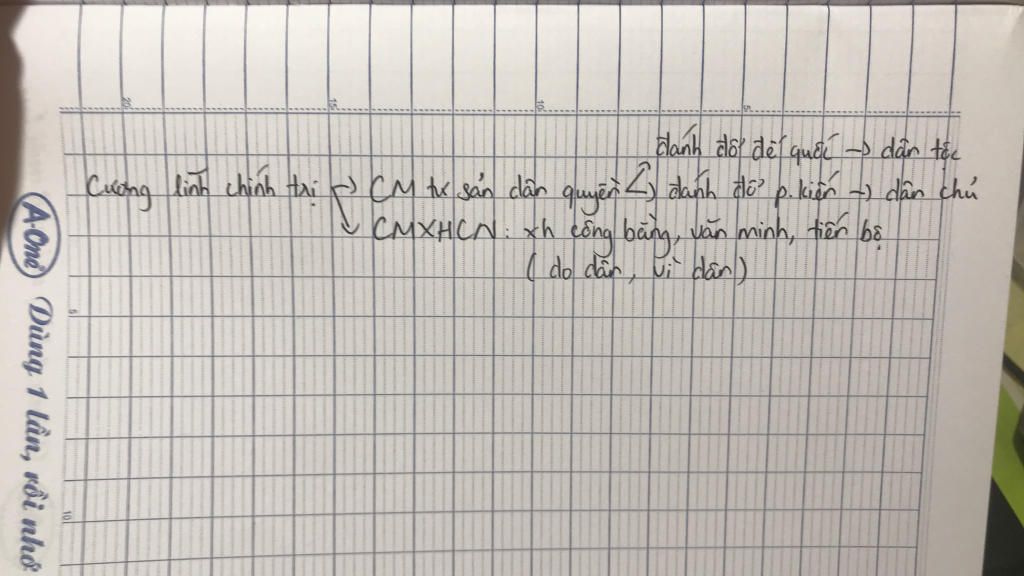 đánh đổ đế quốc → dân tộc
Cương lĩnh chính trị → CM tư sản dân quyền → đánh đổ p.kiến → dân chủ
↘ CMXHCN: xh công bằng, văn minh, tiến bộ
(do dân, vì dân)
A.One Dùng 1 lần, rồi nhớ
20 15 10 5
5
10